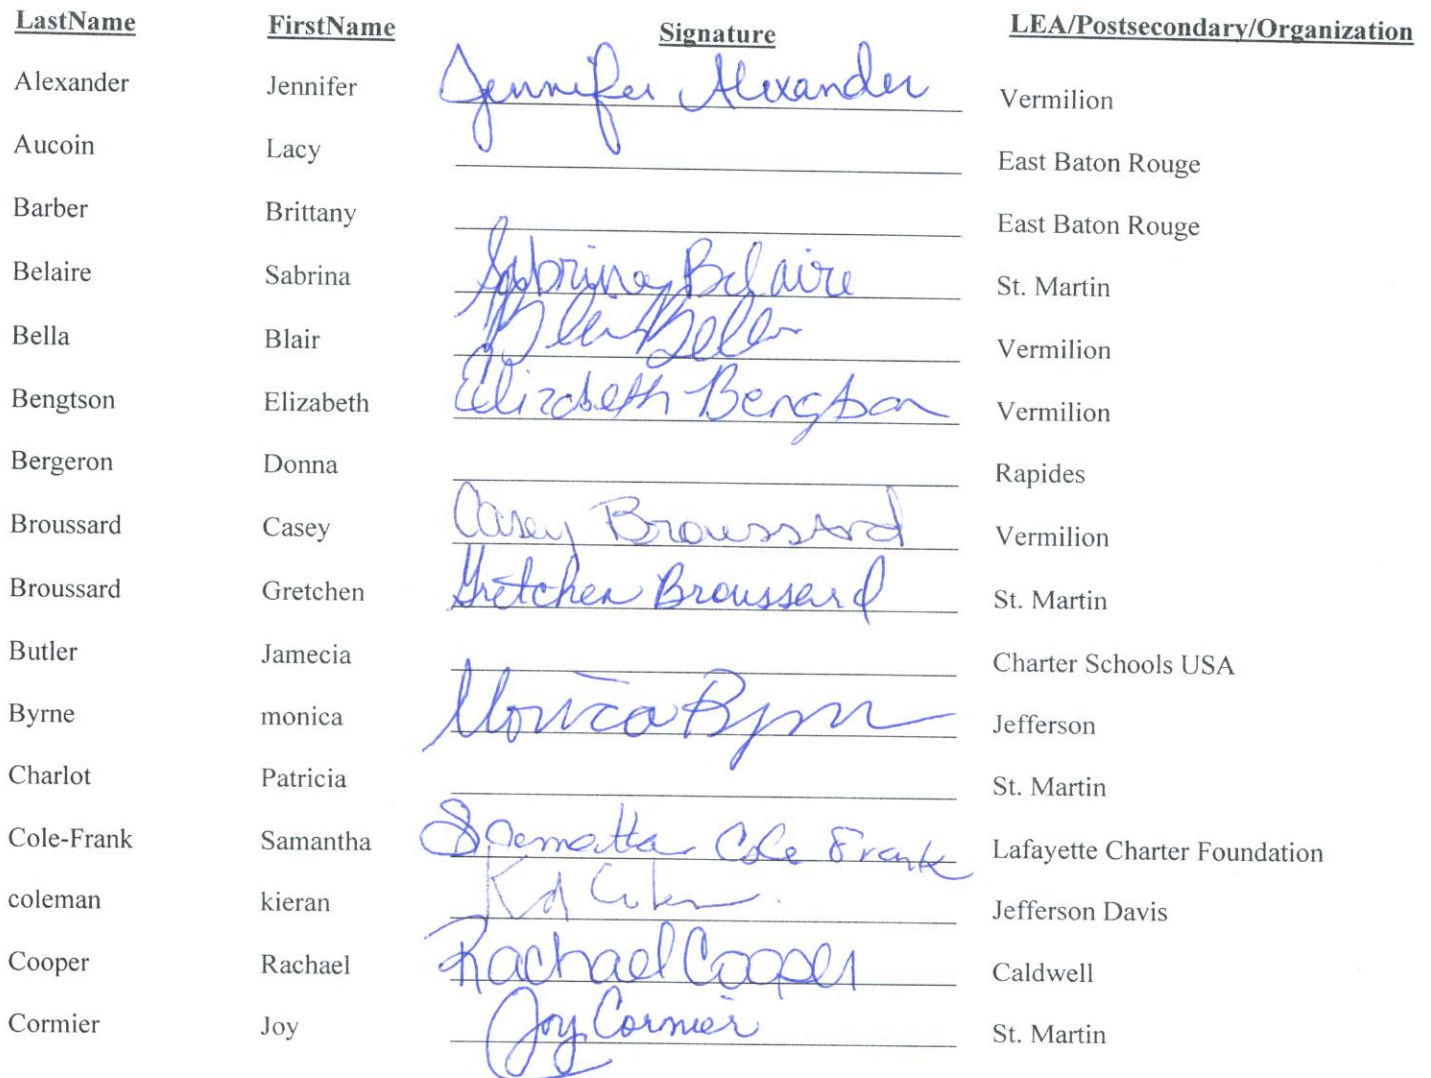 LastName FirstName Signature LEA/Postsecondary/Organization
Alexander Jennifer Jennifer Alexander Vermilion
Aucoin Lacy East Baton Rouge
Barber Brittany East Baton Rouge
Belaire Sabrina Sabrina Belaire St. Martin
Bella Blair Blair Bella Vermilion
Bengtson Elizabeth Elizabeth Bengtson Vermilion
Bergeron Donna Rapides
Broussard Casey Casey Broussard Vermilion
Broussard Gretchen Gretchen Broussard St. Martin
Butler Jamecia Charter Schools USA
Byrne monica Monica Byrne Jefferson
Charlot Patricia St. Martin
Cole-Frank Samantha Samantha Cole Frank Lafayette Charter Foundation
coleman kieran Jefferson Davis
Cooper Rachael Rachael Cooper Caldwell
Cormier Joy Joy Cormier St. Martin